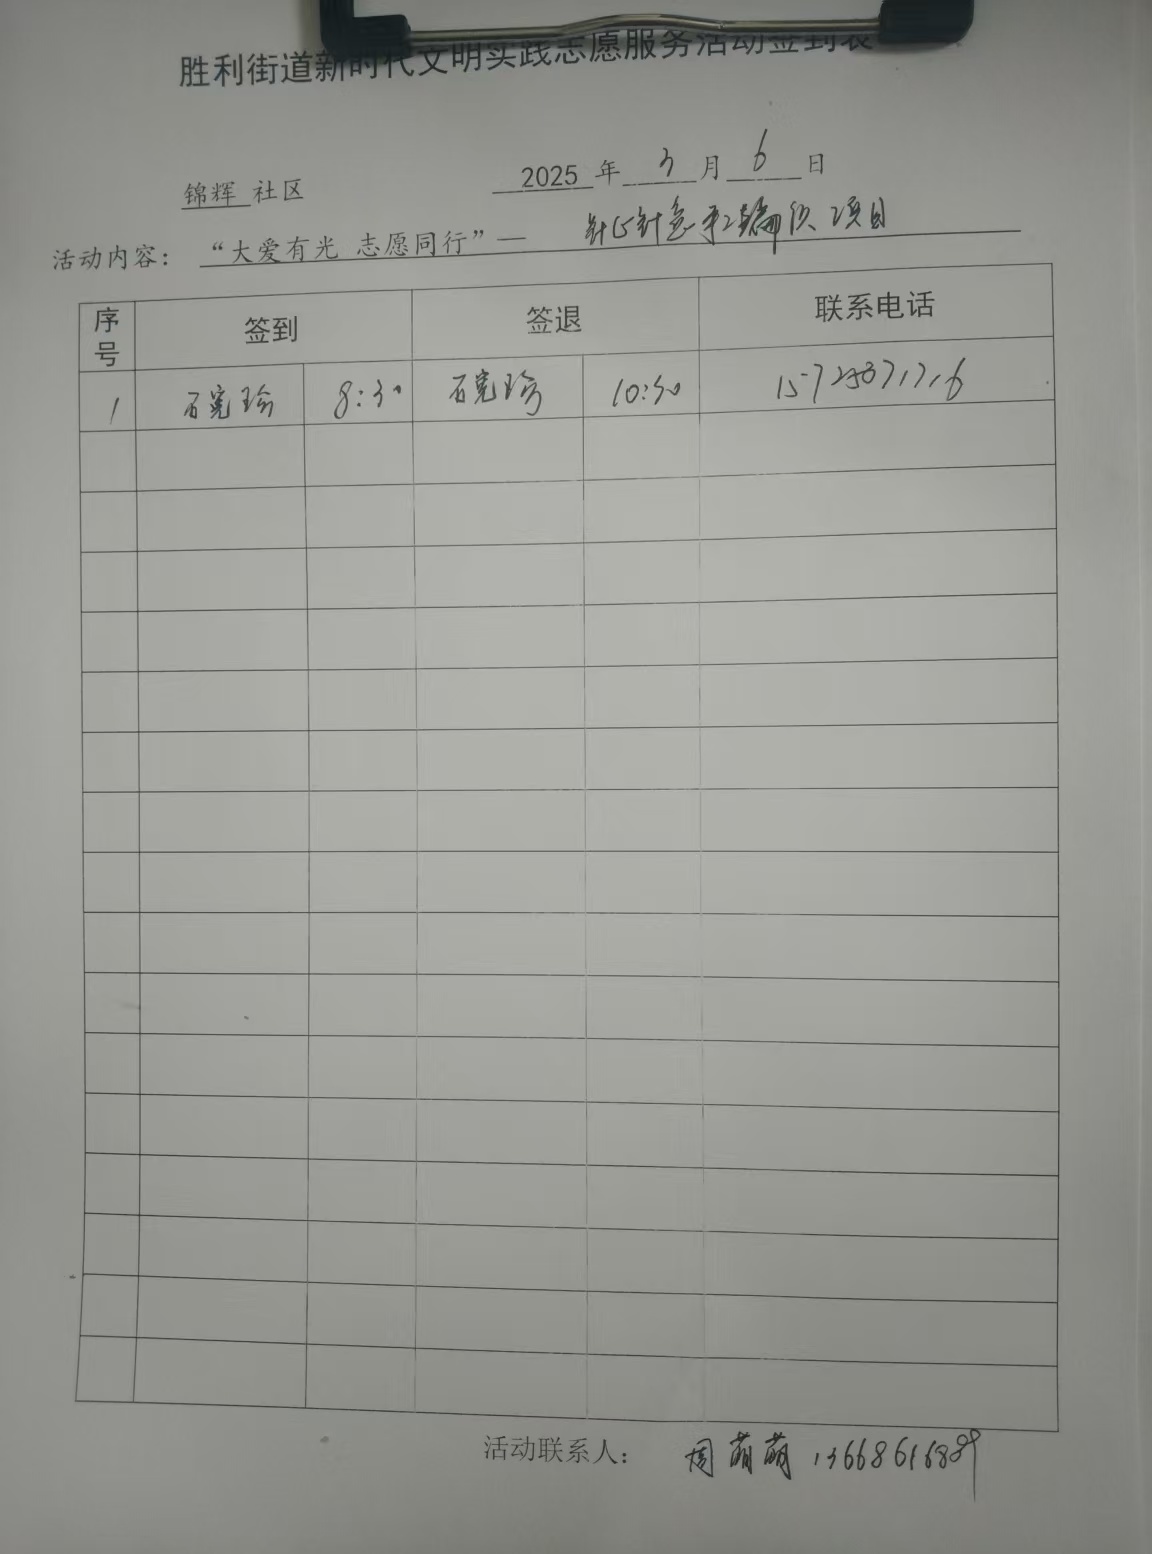 胜利街道新时代文明实践志愿服务活动签到表
锦辉 社区 2025 年 3 月 6 日
活动内容： “大爱有光 志愿同行”— 针心针意手工编织项目
序号 签到 签退 联系电话
1 石宪玲 8:30 石宪玲 10:30
活动联系人： 周萌萌